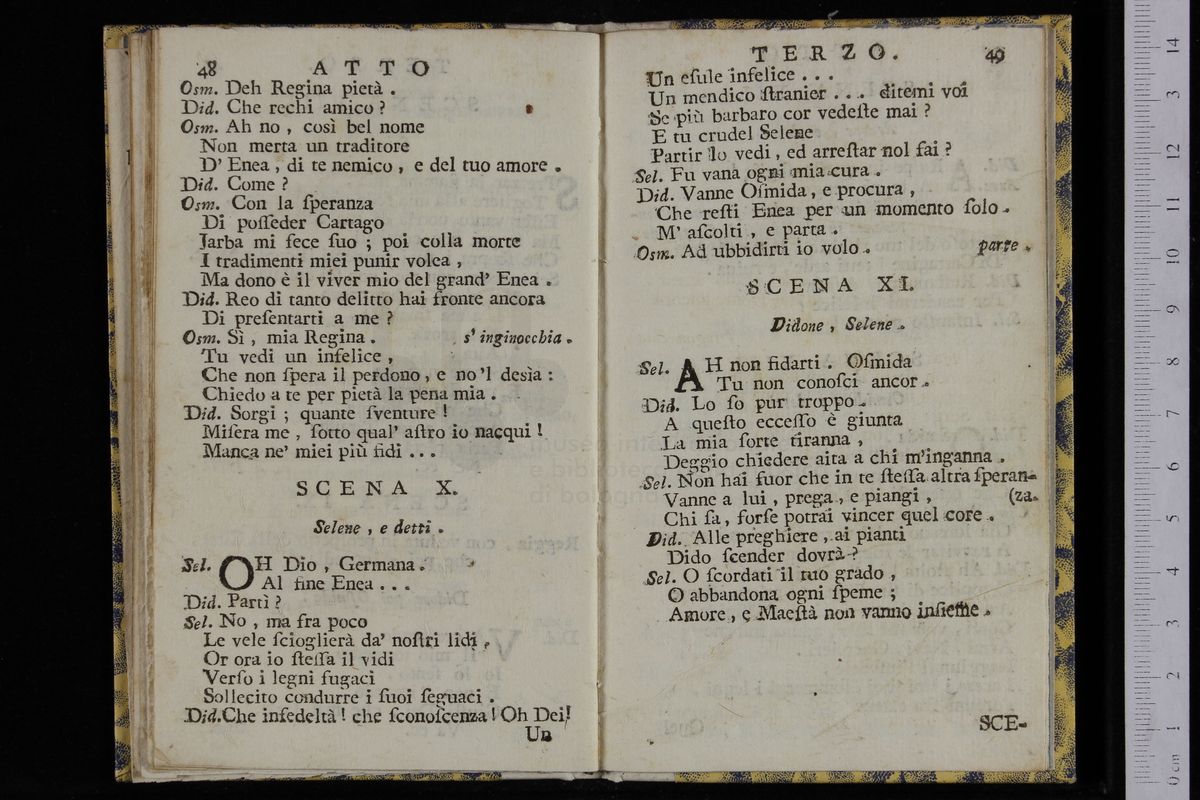 48 ATTO
Osm. Deh Regina pietà .
Did. Che rechi amico ?
Osm. Ah no , così bel nome
Non merta un traditore
D' Enea , di te nemico , e del tuo amore .
Did. Come ?
Osm. Con la ſperanza
Di poſſeder Cartago
Jarba mi fece ſuo ; poi colla morte
I tradimenti miei punir volea ,
Ma dono è il viver mio del grand' Enea .
Did. Reo di tanto delitto hai fronte ancora
Di preſentarti a me ?
Osm. Sì , mia Regina . s' inginocchia .
Tu vedi un infelice ,
Che non ſpera il perdono , e no'l desìa :
Chiedo a te per pietà la pena mia .
Did. Sorgi ; quante ſventure !
Miſera me , ſotto qual' aſtro io nacqui !
Manca ne' miei più fidi ...
SCENA X.
Selene , e detti .
Sel. OH Dio , Germana .
Al fine Enea ...
Did. Partì ?
Sel. No , ma fra poco
Le vele ſcioglierà da' noſtri lidi .
Or ora io ſteſſa il vidi
Verſo i legni fugaci
Sollecito condurre i ſuoi ſeguaci .
Did. Che infedeltà ! che ſconoſcenza ! Oh Dei!
Un
TERZO. 49
Un eſule infelice ...
Un mendico ſtranier ... ditemi voi
Se più barbaro cor vedeſte mai ?
E tu crudel Selene
Partir lo vedi , ed arreſtar nol fai ?
Sel. Fu vana ogni mia cura .
Did. Vanne Oſmida , e procura ,
Che reſti Enea per un momento ſolo .
M' aſcolti , e parta .
Osm. Ad ubbidirti io volo . parte .
SCENA XI.
Didone , Selene .
Sel. AH non fidarti . Oſmida
Tu non conoſci ancor .
Did. Lo ſo pur troppo .
A queſto ecceſſo è giunta
La mia ſorte tiranna ,
Deggio chiedere aita a chi m'inganna .
Sel. Non hai fuor che in te ſteſſa altra ſperan-
Vanne a lui , prega , e piangi , (za.
Chi ſa , forſe potrai vincer quel core .
Did. Alle preghiere , ai pianti
Dido ſcender dovrà ?
Sel. O ſcordati il tuo grado ,
O abbandona ogni ſpeme ;
Amore , e Maeſtà non vanno inſieme .
SCE-